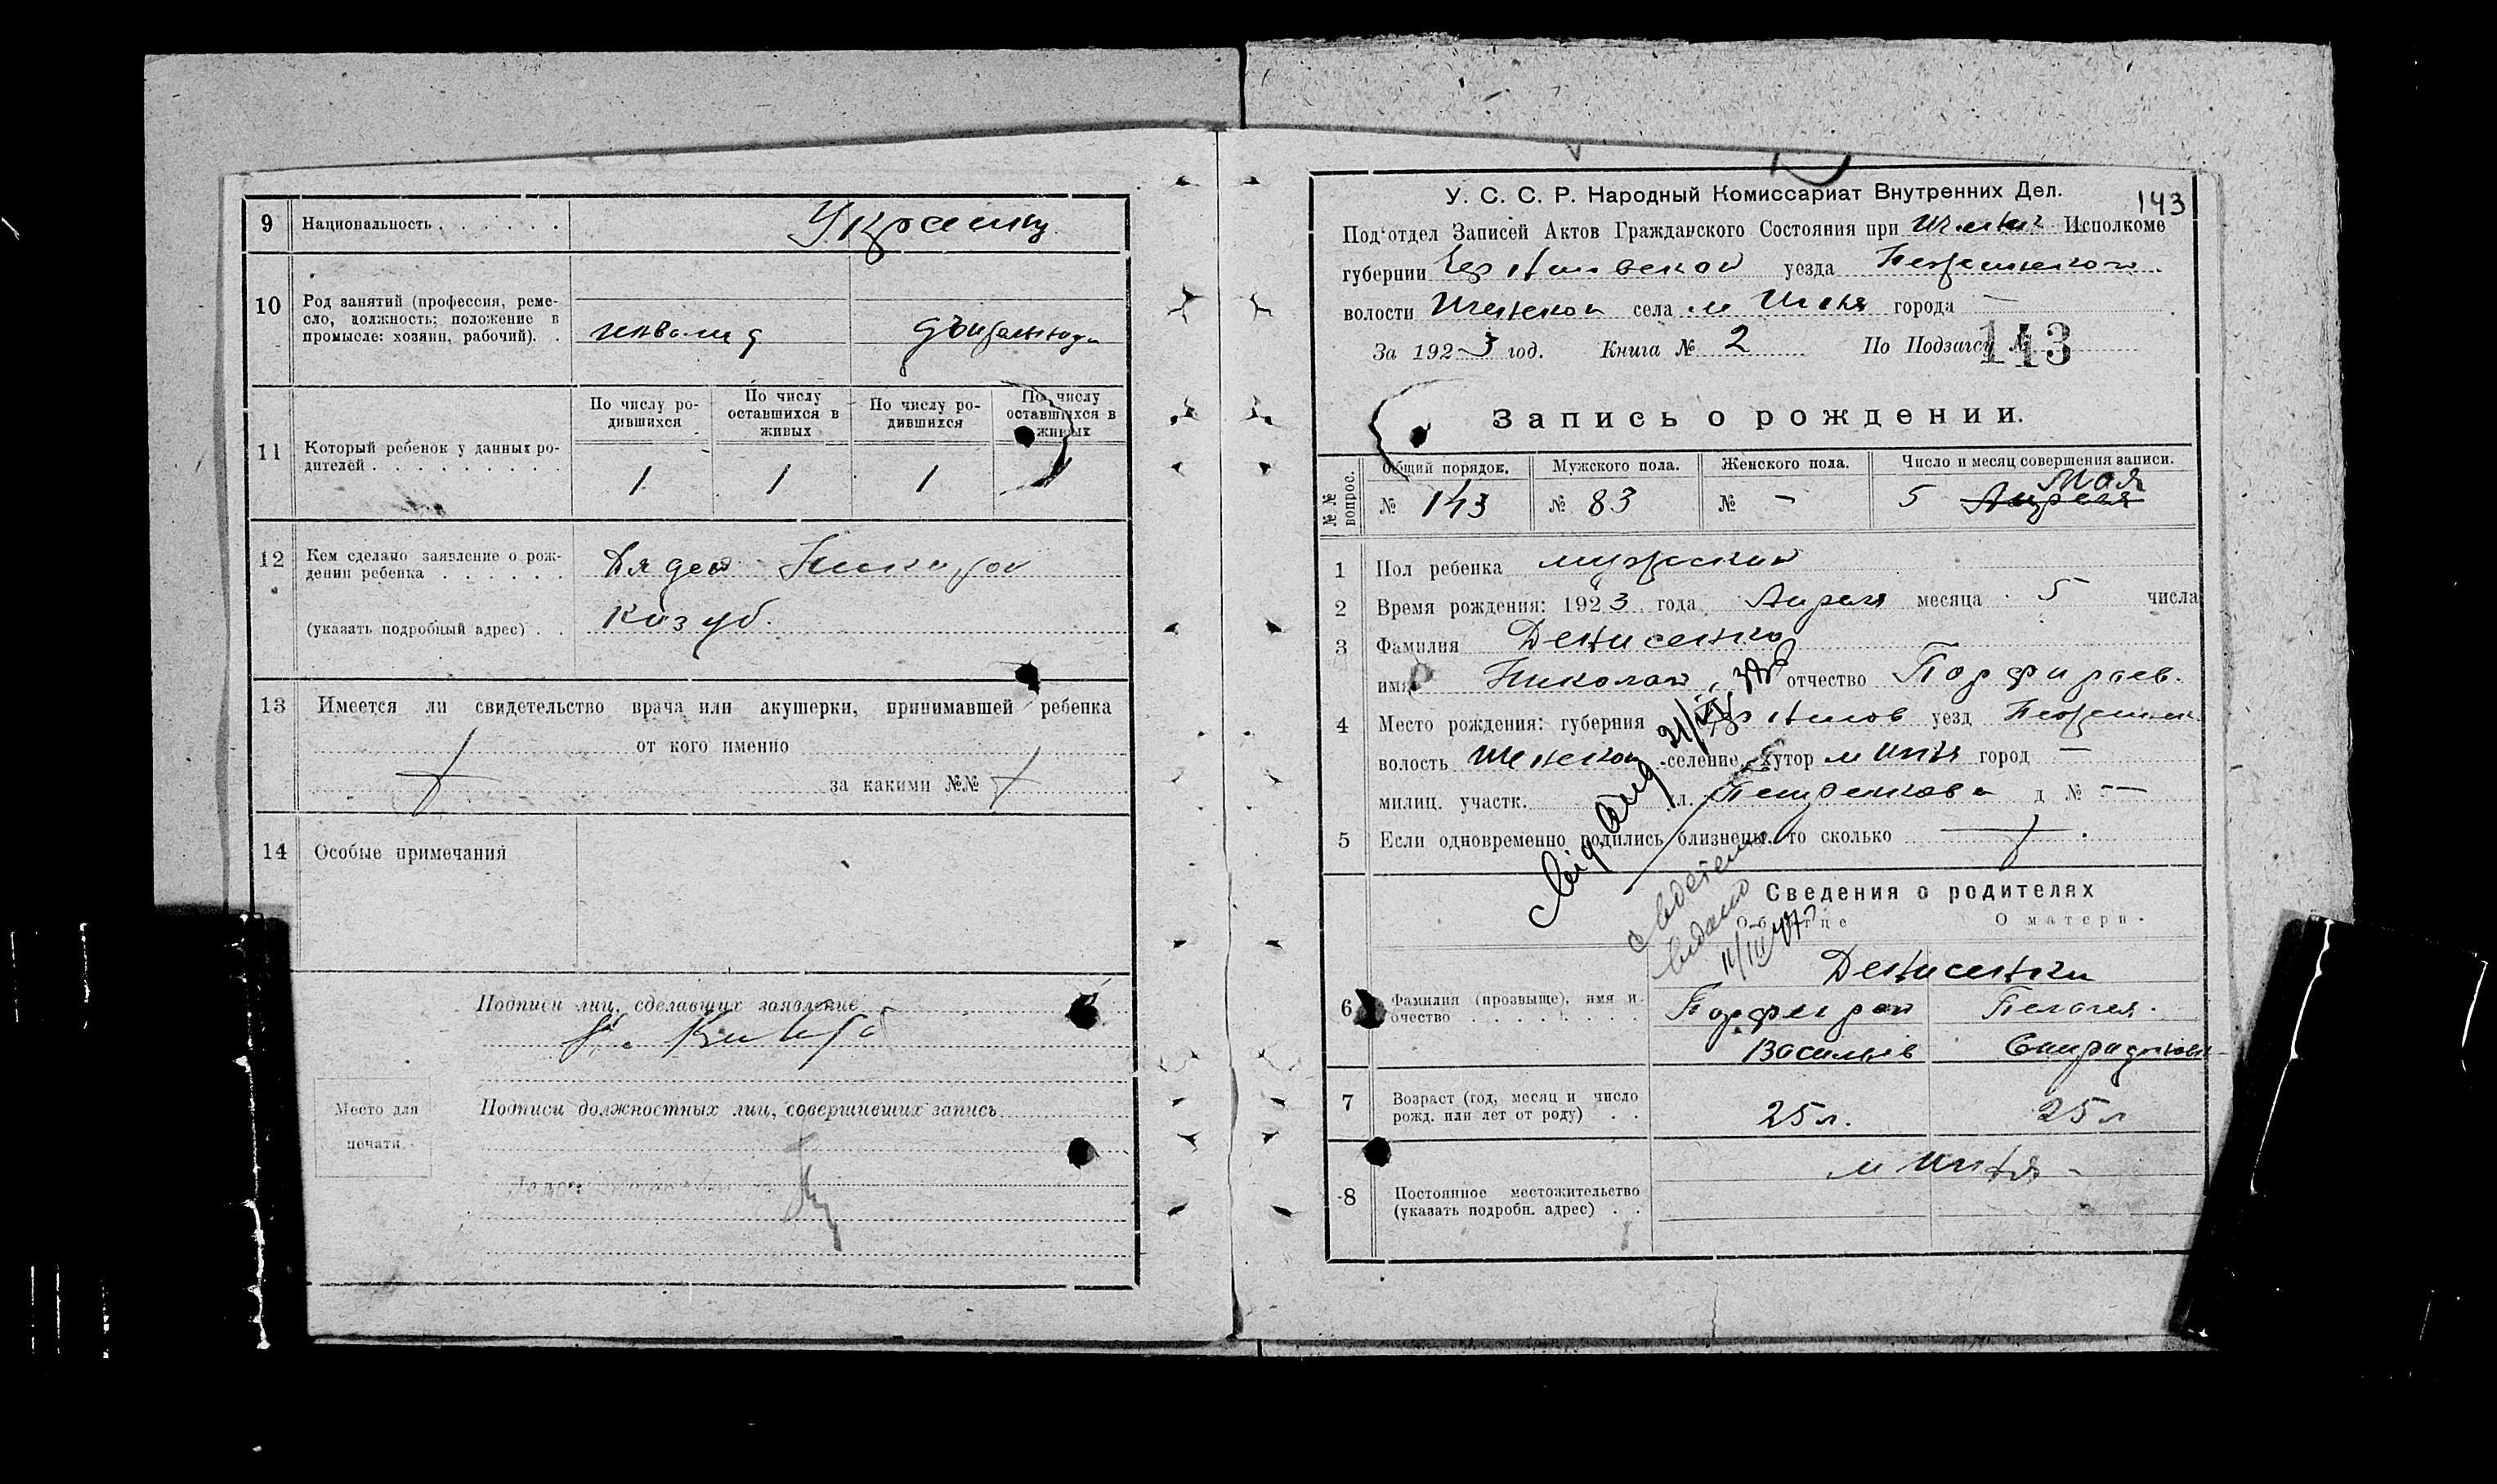 9 Национальность . . . . . . Украинц
10 Род занятий (профессия, реме-
сло, должность; положение в
промысле: хозяин, рабочий). . инвалид
По числу ро-
дившихся
По числу
оставшихся в
живых
По числу ро-
дившихся
По числу
оставшихся в
живых
11 Который ребенок у данных ро-
дителей . . . . . . . . . 1 1 1 1
12 Кем сделано заявление о рож-
дении ребенка . . . . . . Дядей
(указать подробный адрес) . . Козуб.
13 Имеется ли свидетельство врача или акушерки, принимавшей ребенка
от кого именно
за какими №№
14 Особые примечания
Подписи лиц, сделавших заявление
Подписи должностных лиц, совершивших запись
Место для
печати.
У. С. С. Р. Народный Комиссариат Внутренних Дел. 143
Под‘отдел Записей Актов Гражданского Состояния при Исполкоме
губернии Черниговской уезда
волости Менской села м Мена города —
За 1923 год. Книга № 2 По Подзагсу № 143
Запись о рождении.
№№ вопрос.
Общий порядок. Мужского пола. Женского пола. Число и месяц совершения записи.
Мая
№ 143 № 83 № - 5 Апреля
1 Пол ребенка мужский
2 Время рождения: 1923 года Апреля месяца 5 числа
3 Фамилия Денисенко
имя Николай отчество Порфириев.
4 Место рождения: губерния Чернигов уезд
волость Менской селение, хутор м Мена город —
милиц. участк. ул. д № —
5 Если одновременно родились близнецы то сколько
Сведения о родителях
Об отце О матери.
Денисенки
6 Фамилия (прозвыще), имя и
очество . . . . . . . . Порфирий Пелагея.
Васильев Спиридоновн
7 Возраст (год, месяц и число
рожд. или лет от роду) . . 25 л. 25 л
м Мена
8 Постоянное местожительство
(указать подробн. адрес) . .